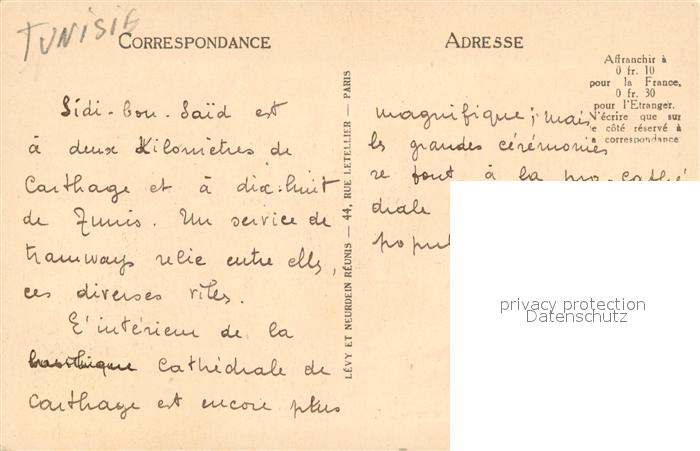 TUNISIE
CORRESPONDANCE
Sidi-bou-Saïd est
à deux Kilomètres de
Carthage et à dix-huit
de Tunis. Un service de
tramways relie entre elles,
ces diverses villes.
L'intérieur de la
basilique Cathédrale de
Carthage est encore plus
LÉVY ET NEURDEIN RÉUNIS — 44, RUE LETELLIER — PARIS
ADRESSE
Affranchir à
0 fr. 10
pour la France,
0 fr. 30
pour l'Etranger.
N'écrire que sur
le côté réservé à
la correspondance
magnifique; mais
les grandes cérémonies
se font à la pro-cathé
drale
popul
privacy protection
Datenschutz